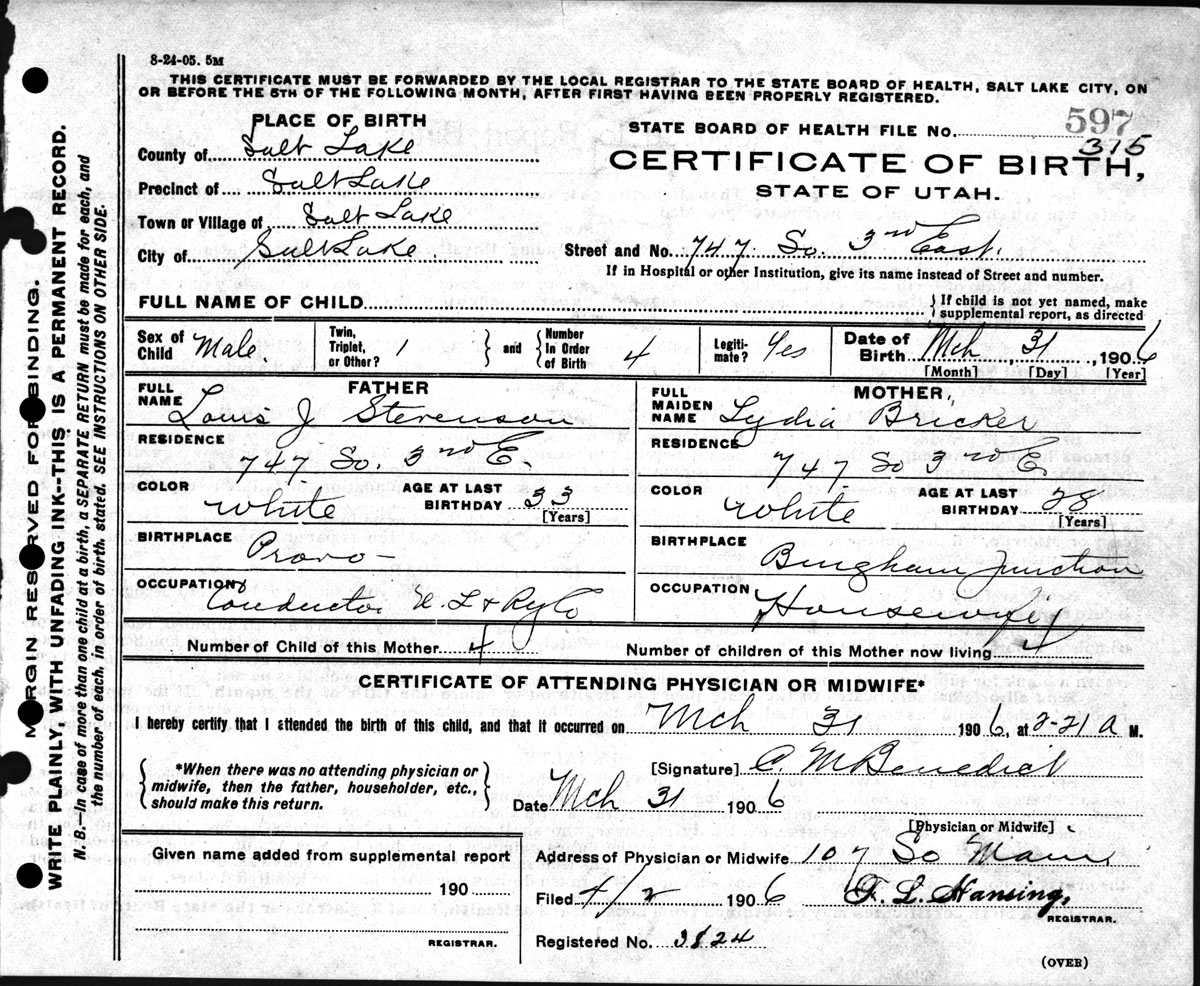 8-24-05. 5M
THIS CERTIFICATE MUST BE FORWARDED BY THE LOCAL REGISTRAR TO THE STATE BOARD OF HEALTH, SALT LAKE CITY, ON
OR BEFORE THE 5TH OF THE FOLLOWING MONTH, AFTER FIRST HAVING BEEN PROPERLY REGISTERED.
MARGIN RESERVED FOR BINDING.
WRITE PLAINLY, WITH UNFADING INK--THIS IS A PERMANENT RECORD.
N. B.—In case of more than one child at a birth, a SEPARATE RETURN must be made for each, and
the number of each, in order of birth, stated. SEE INSTRUCTIONS ON OTHER SIDE.
PLACE OF BIRTH
County of Salt Lake
Precinct of Salt Lake
Town or Village of Salt Lake
City of Salt Lake
STATE BOARD OF HEALTH FILE NO. 597
315
CERTIFICATE OF BIRTH,
STATE OF UTAH.
Street and No. 747 So. 3rd East.
If in Hospital or other Institution, give its name instead of Street and number.
FULL NAME OF CHILD
If child is not yet named, make
supplemental report, as directed
Sex of Child Male.
Twin, Triplet, or Other? 1
and
Number In Order of Birth 4
Legiti-mate? Yes
Date of Birth Mch 31, 1906
[Month] [Day] [Year]
FATHER
FULL NAME Louis J Stevenson
RESIDENCE
747 So. 3rd E.
COLOR White
AGE AT LAST BIRTHDAY 33
[Years]
BIRTHPLACE
Provo
OCCUPATION
Conductor U. L & Ry Co
MOTHER
FULL MAIDEN NAME Lydia Bricker
RESIDENCE
747 So 3rd E.
COLOR White
AGE AT LAST BIRTHDAY 28
[Years]
BIRTHPLACE
Bingham Junction
OCCUPATION
Housewife
Number of Child of this Mother 4
Number of children of this Mother now living 4
CERTIFICATE OF ATTENDING PHYSICIAN OR MIDWIFE*
I hereby certify that I attended the birth of this child, and that it occurred on Mch 31 1906, at 2-21 A M.
*When there was no attending physician or
midwife, then the father, householder, etc.,
should make this return.
[Signature] C. M Benedict
Date Mch 31 1906
[Physician or Midwife]
Given name added from supplemental report
190
REGISTRAR.
Address of Physician or Midwife 107 So Main
Filed 4/2 1906 T. L. Hansing,
REGISTRAR.
Registered No. 3824
(OVER)